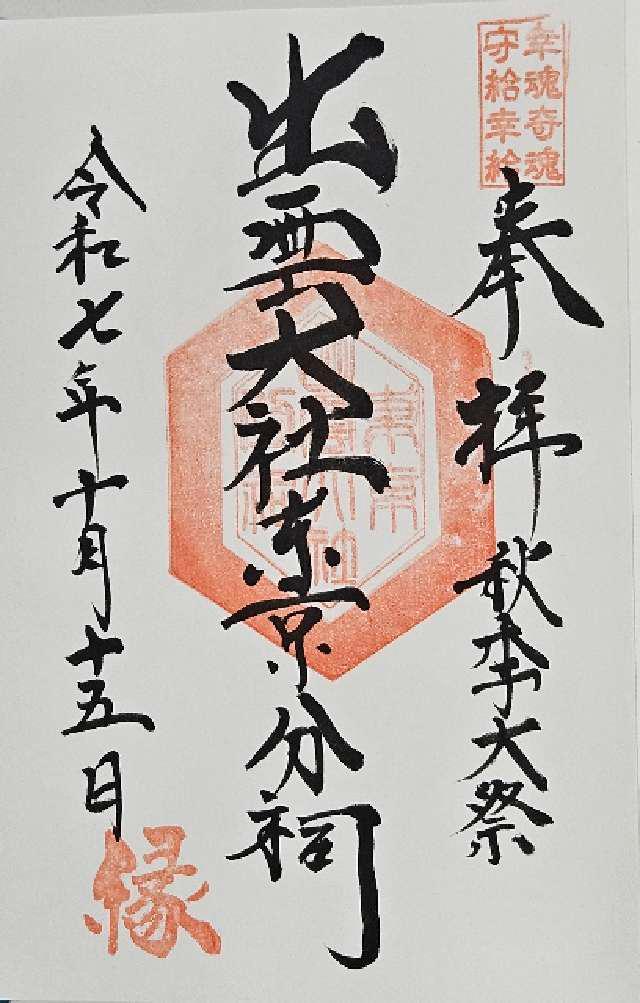 幸魂奇魂
守給幸給
奉拝 秋季大祭
出雲大社東京分祠
令和七年十月十五日
縁